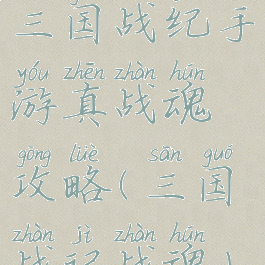 三国战纪手
yóu zhēn zhàn hún
游真战魂
gōng lüè sān guó
攻略(三国
zhàn jì zhàn hún
战记战魂)